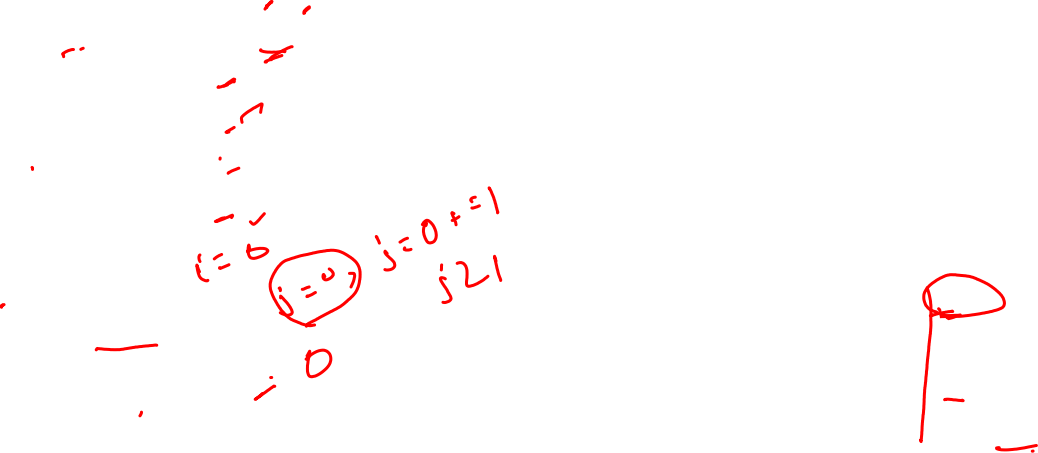 i=0
j=0,
j=0+=1
j=1
0